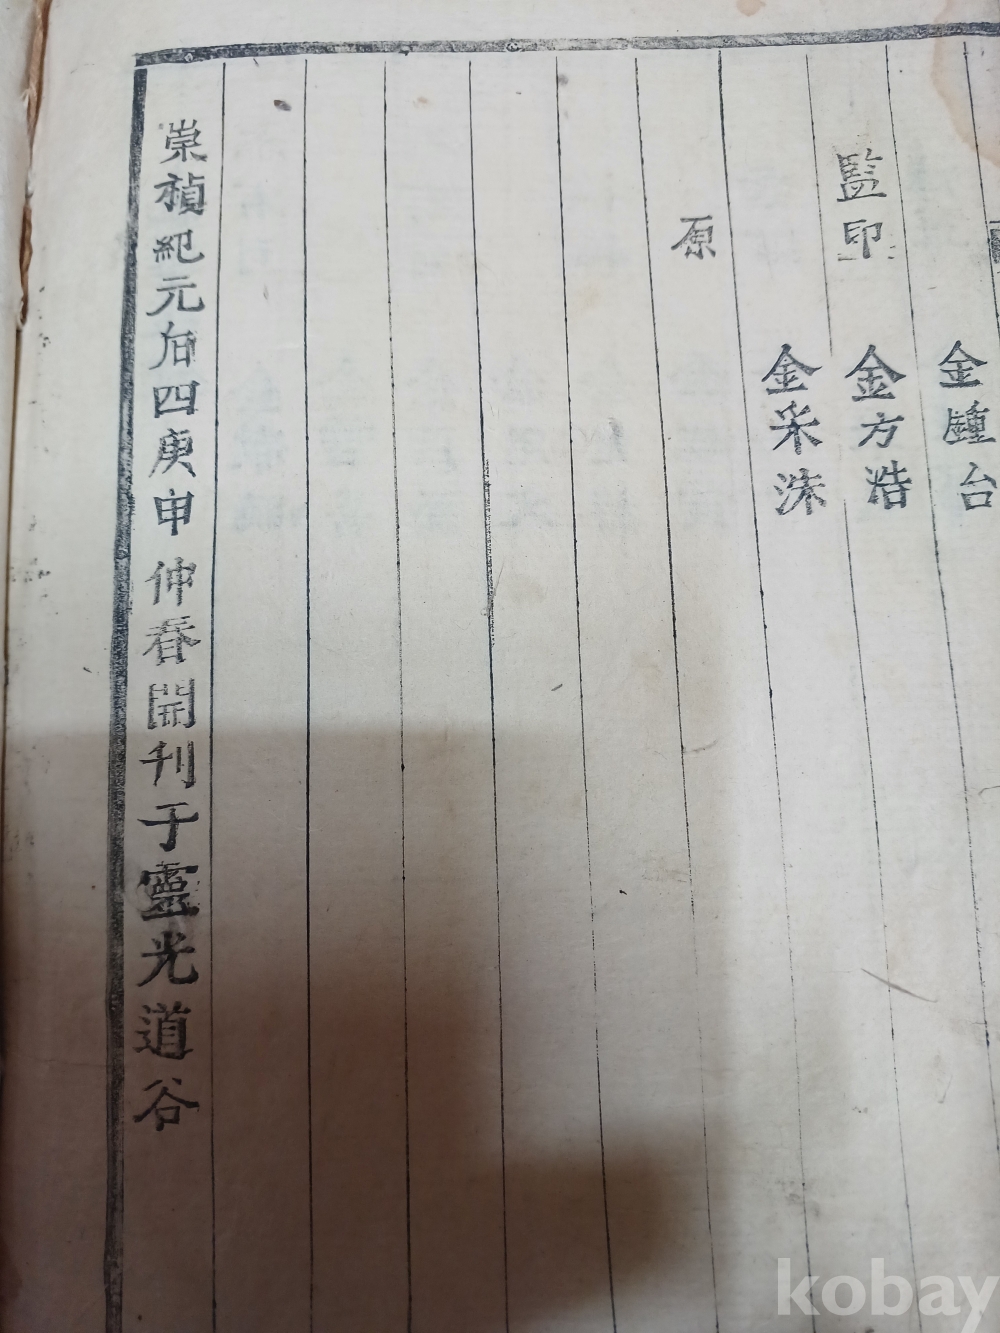 金鍾台
監印 金方浩
金采洙
原
崇禎紀元后四庚申仲春開刊于靈光道谷
kobay